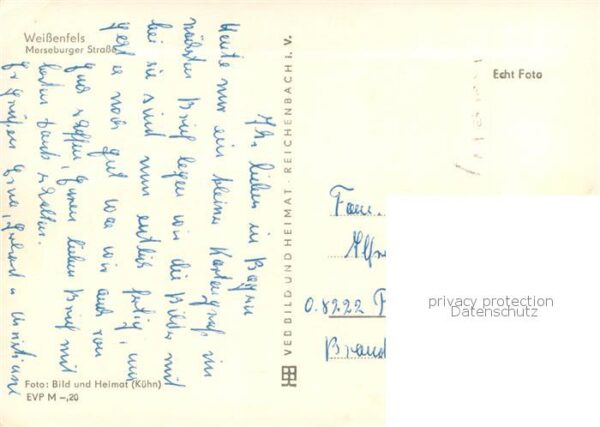 Weißenfels
Merseburger Straße
Ihr lieben in Bayern
Heute nur ein kleiner Kartengruß, im
nächsten Brief legen wir die Bilder mit
bei sie sind nun endlich fertig, uns
geht es noch gut was wir auch von
Euch hoffen, Euren lieben Brief mit
Dank erhalten.
Es grüßen u. Christiane
Foto: Bild und Heimat (Kühn)
EVP M -,20
VEB BILD UND HEIMAT · REICHENBACH I. V.
Echt Foto
Fam.
Alfre
0.8222 F
Brand
privacy protection
Datenschutz